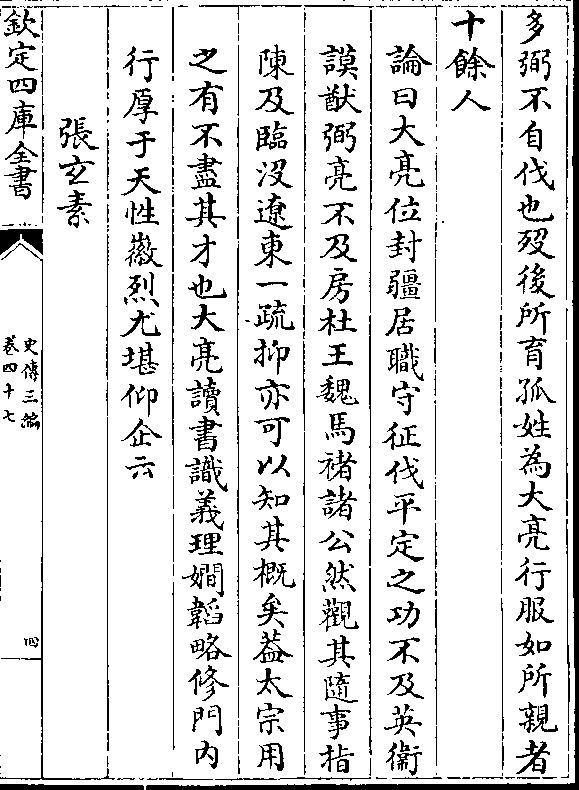 多弼不自伐也歿後所育孤姓為大亮行服如所親者
十餘人
論曰大亮位封疆居職守征伐平定之功不及英衛
謨猷弼亮不及房杜王魏馬褚諸公然觀其隨事指
陳及臨沒遼東一疏抑亦可以知其概矣葢太宗用
之有不盡其才也大亮讀書識義理嫺韜略修門內
行厚于天性徽烈尤堪仰企云
張玄素
欽定四庫全書
史傳三編
卷四十七
四